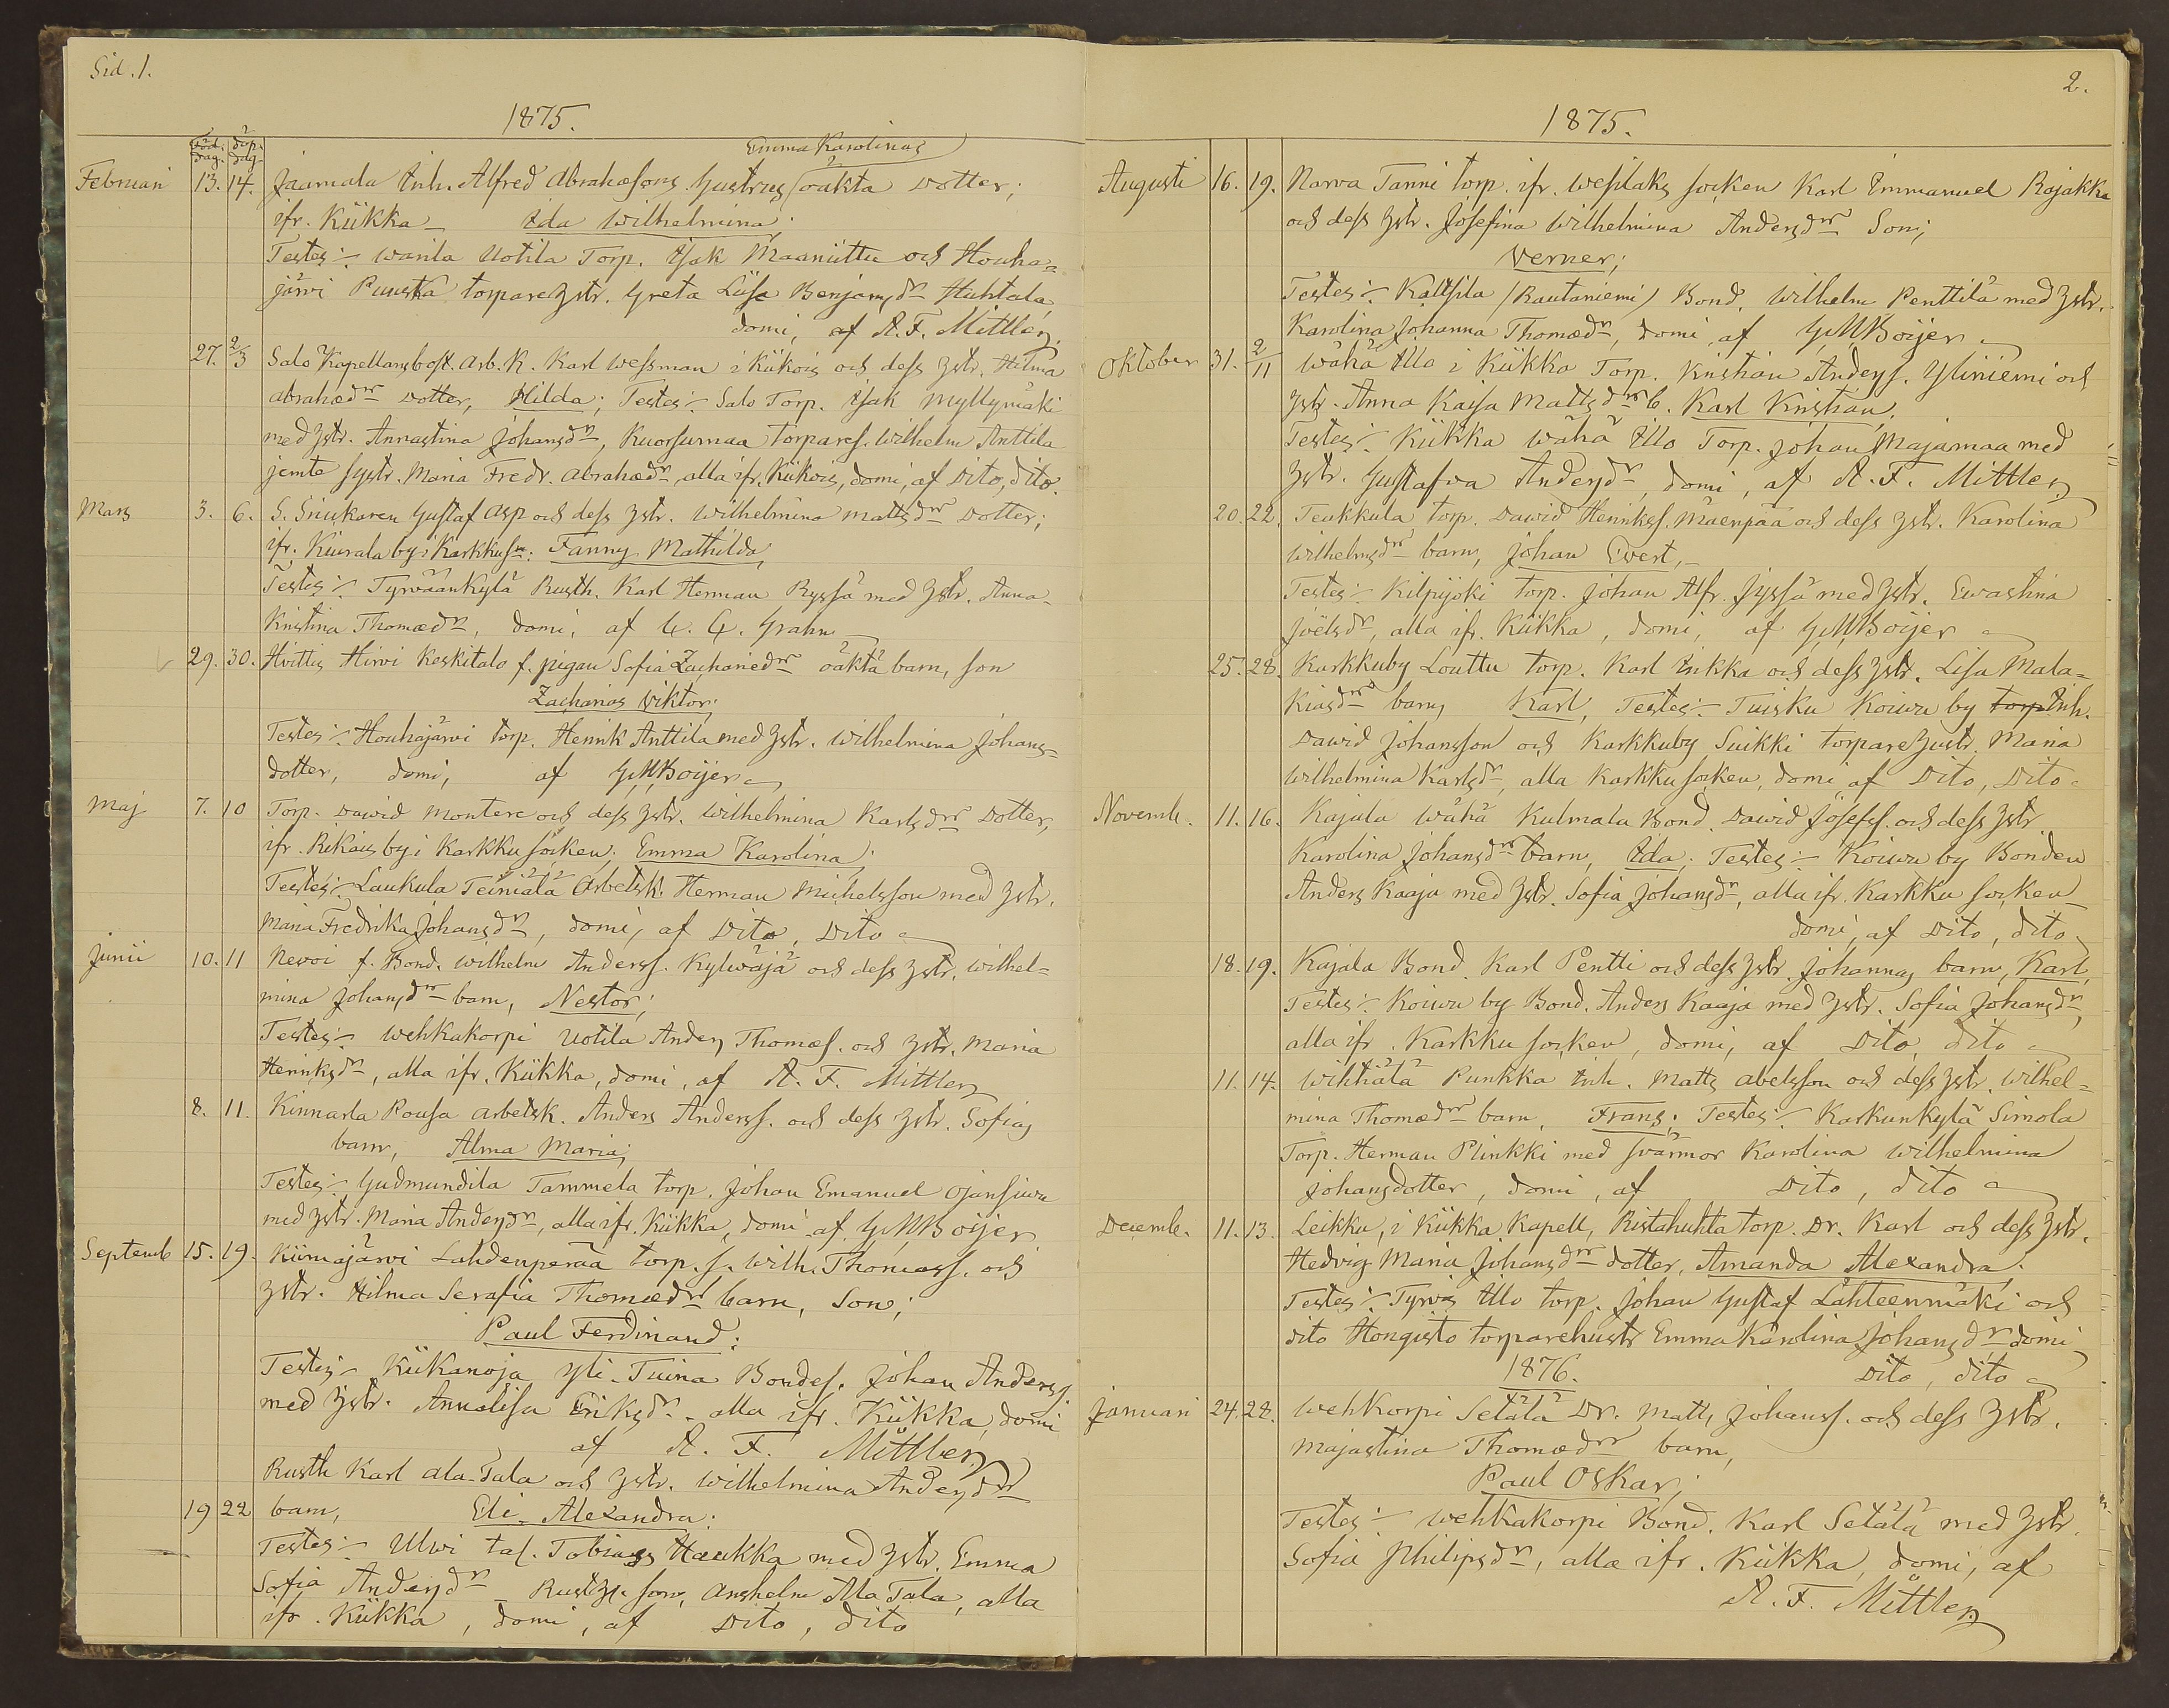 Sid. 1.
1875.
Föd. dag. döp. dag.
Emma Karolinas
Februari 13. 14. Jaamala Inh. Alfred Abrahamsons hustrus oäkta dotter;
ifr. Kiikka – Ida Wilhelmina;
Testes:- Wanila Uotila Torp. Isak Maaniittu och Houha=
järvi Puuska torpare hstr. Greta Liisa Benjamsdr Huhtala
domi, af A. F. Mittler
27. 2/3 Salo Kapellansbost. Arb. K. Karl Wessman i Kiikois och dess hstr. Hilma
Abrahadr dotter, Hilda; Testes:- Salo Torp. Isak Myllymäki
med hstr. Annastina Johansdr, Kuorsumaa torpares. Wilhelm Anttila
jemte systr. Maria Fredr. Abrahadr, alla ifr. Kiikois, domi, af Dito, dito.
Mars 3. 6. S. Snickaren Gustaf Asp och dess hstr. Wilhelmina Mattsdr dotter;
ifr. Kiurala by i Karkku sn: Fanny Mathilda,
Testes:- Tyrväänkylä Rusth. Karl Herman Ryssä med hstr. Anna
Kristina Thomasdr, domi, af Grahn
29. 30. Hvittis Hirvi Keskitalo f. pigan Sofia Zachariedr oäkta barn, son
Zacharias Viktor;
Testes:- Houhajärvi torp. Henrik Anttila med hstr. Wilhelmina Johans=
dotter, domi, af G M Boijer
Maj 7. 10 Torp. Dawid Montere och dess hstr. Wilhelmina Karlsdr dotter,
ifr. Rikais by i Karkku socken; Emma Karolina;
Testes:- Laukula Teiniälä Arbetsk. Herman Michelsson med hstr.
Maria Fredrika Johansdr, domi, af Dito, Dito
Junii 10. 11 Nevoi f. Bond. Wilhelm Anderss. Kylwäjä och dess hstr. Wilhel=
mina Johansdr barn, Nestor;
Testes:- Wehkakorpi Uotila Anders Thomass. och hstr. Maria
Henriksdr, alla ifr. Kiikka, domi, af A. F. Mittler
8. 11. Kinnarla Pousa arbetsk. Anders Anderss. och dess hstr. Sofias
barn, Alma Maria;
Testes:- Gudmundila Tammela torp. Johan Emanuel Ojansiwu
med hstr. Maria Andersdr, alla ifr. Kiikka, domi af G M Boijer
Septemb 15. 19. Kiimajärvi Lahdenperää torp. s. Wilh. Thomass. och
hstr. Hilma Serafia Thomasdr barn, Son;
Paul Ferdinand;
Testes:- Kiikanoja Yli-Tuina Bondes. Johan Anderss.
med hstr. Annaliisa Eriksdr. alla ifr. Kiikka, domi
af A. F. Mittler
Rusth Karl Ala-Tala och hstr. Wilhelmina Andersdr
19 22 barn, Eli Alexandra;
Testes:- Ulwi tal. Tobias Haukka med hstr. Emma
Sofia Andersdr – Rusth. son, Anshelm Ala Tala, alla
ifr. Kiikka, domi, af Dito, dito
2.
1875.
Augusti 16. 19. Narva Tanni torp. ifr. Wesilaks socken Karl Emmanuel Rajakka
och dess hstr. Josefina Wilhelmina Andersdr Son;
Verner;
Testes:- Kaltsila (Rautaniemi) Bond. Wilhelm Penttilä med hstr.
Karolina Johanna Thomasdr, domi, af G M Boijer
Oktober 31. 2/11 Wähä Illo i Kiikka Torp. Kristian Anderss. Yliniemi och
hstr. Anna Kaisa Mattsdr b. Karl Kristian,
Testes:- Kiikka Wähä Illo Torp. Johan Majamaa med
hstr. Gustafva Andersdr, domi, af A. F. Mittler
20. 22. Teukkula torp. Dawid Henrikss. Mäenpää och dess hstr. Karolina
Wilhelmsdr barn, Johan Evert,
Testes:- Kilpijoki torp. Johan Alfr. Jyssä med hstr. Ewastina
Joëlsdr, alla ifr. Kiikka, domi, af G M Boijer
25. 28. Karkkuby Louttu torp. Karl Inkka och dess hstr. Lisa Mala=
kiasdr barn Karl, Testes:- Tuisku Koiwu by torp Inh.
Dawid Johansson och Karkkuby Suikki torparehustr. Maria
Wilhelmina Karlsdr, alla Karkku socken, domi, af Dito, Dito
Novemb. 11. 16. Kajala Wähä Kulmala Bond. Dawid Josefss. och dess hstr
Karolina Johansdr barn, Ida; Testes:- Koiwu by Bonden
Anders Kaaja med hstr. Sofia Johansdr, alla ifr. Karkku socken
domi, af Dito, dito
18. 19. Kajala Bond. Karl Pentti och dess hstr. Johannas barn, Karl,
Testes:- Koiwu by Bond. Anders Kaaja med hstr. Sofia Johansdr,
alla ifr. Karkku socken, domi, af Dito, dito
11. 14. Wihtiälä Punkka Inh. Matts Abelsson och dess hstr. Wilhel=
mina Thomasdr barn, Frans; Testes:- Karkunkylä Simola
Torp. Herman Plinkki med svärmor Karolina Wilhelmina
Johansdotter, domi, af Dito, dito
Decemb. 11. 13. Leikku, i Kiikka Kapell, Ristahuhta torp. Dr. Karl och dess hstr.
Hedvig Maria Johansdr dotter, Amanda Alexandra;
Testes:- Tyrvis Illo torp. Johan Gustaf Lähteenmäki och
dito Hongisto torparehustr Emma Karolina Johansdr domi,
1876. Dito, dito
Januari 24. 28. Wehkorpi Setälä Dr. Matts Johanss. och dess hstr.
Majastina Thomasdr barn,
Paul Oskar;
Testes:- Wehkakorpi Bond. Karl Setälä med hstr.
Sofia Philipsdr, alla ifr. Kiikka, domi, af
A. F. Mittler